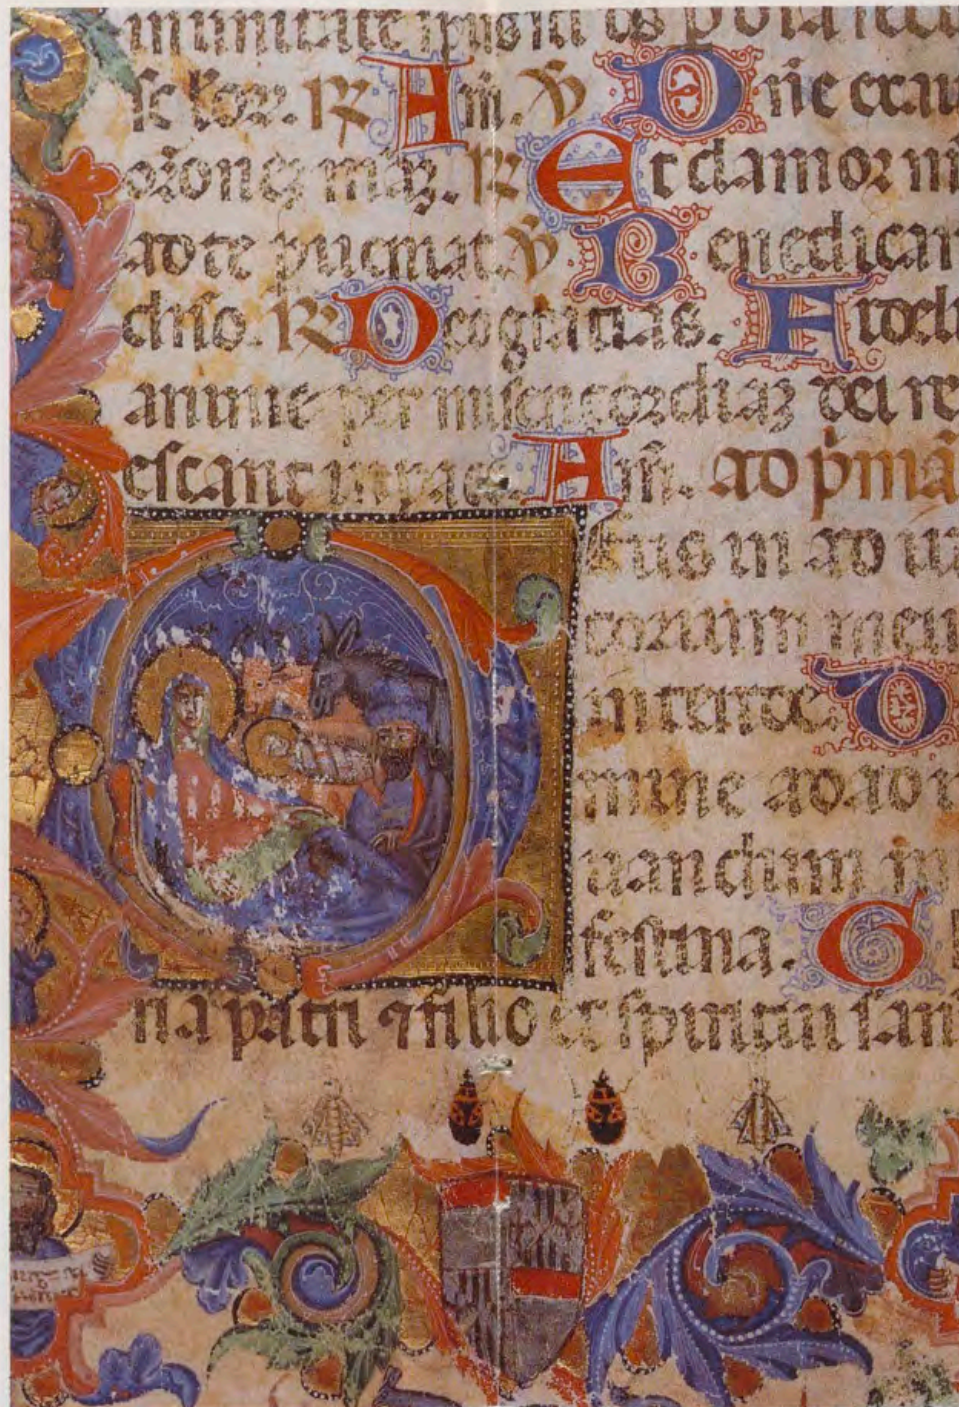 sc̄lor. ℟ Am̄. ℣ Dn̄e exau
or̄onez mā̄z. ℟ Et clamor m
ad te ꝑueniat. ℣ Benedicam
dn̄o. ℟ Deo gratias. Fideli
anime per misericordiaz dei re
escant in pace. Am̄. ad p̄mā
eus in ad iu
torium meu
intende. Do
mine ad ad i
uandum m
festina. Glo
ria patri ⁊ filio et spiritui san